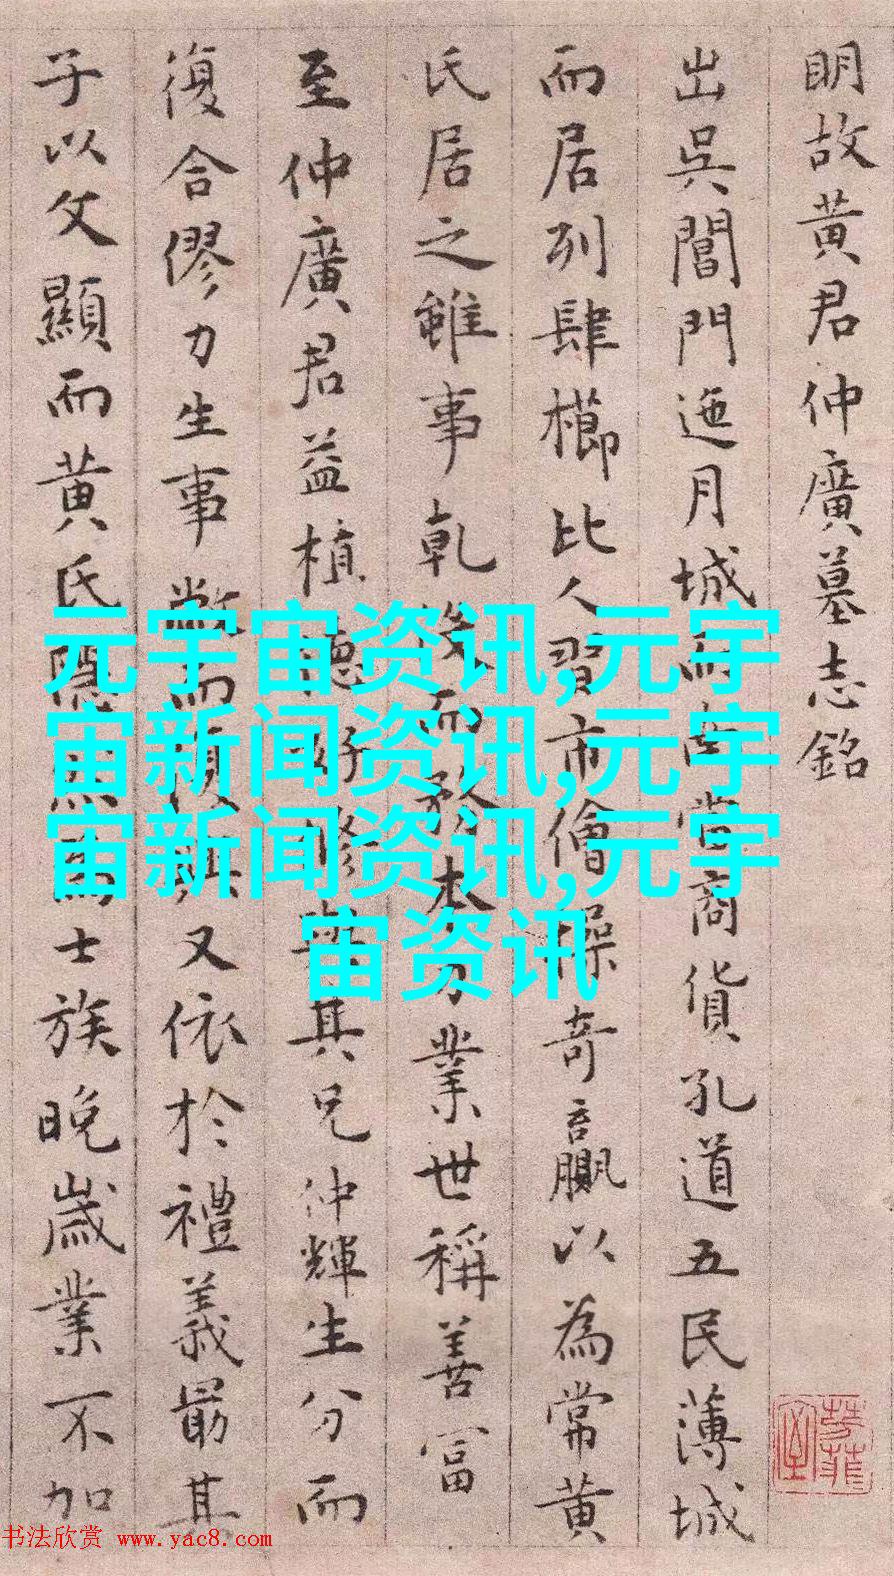 明故黄君仲廣墓志銘
出吳閶門迤月城而南當商貨孔道五民薄城
而居列肆櫛比人習市儈操奇贏以為常黄
氏居之雖事乾沒而務本力業世稱善富
至仲廣君益植德好修與其兄仲輝生分而
復合僇力生事
又依於禮義最其
子以文顯而黄氏隱然為士族晚歲業不加
元宇宙资讯,元宇
宙新闻资讯,元宇
宙新闻资讯,元宇
宙资讯
书法欣赏 www.yac8.com